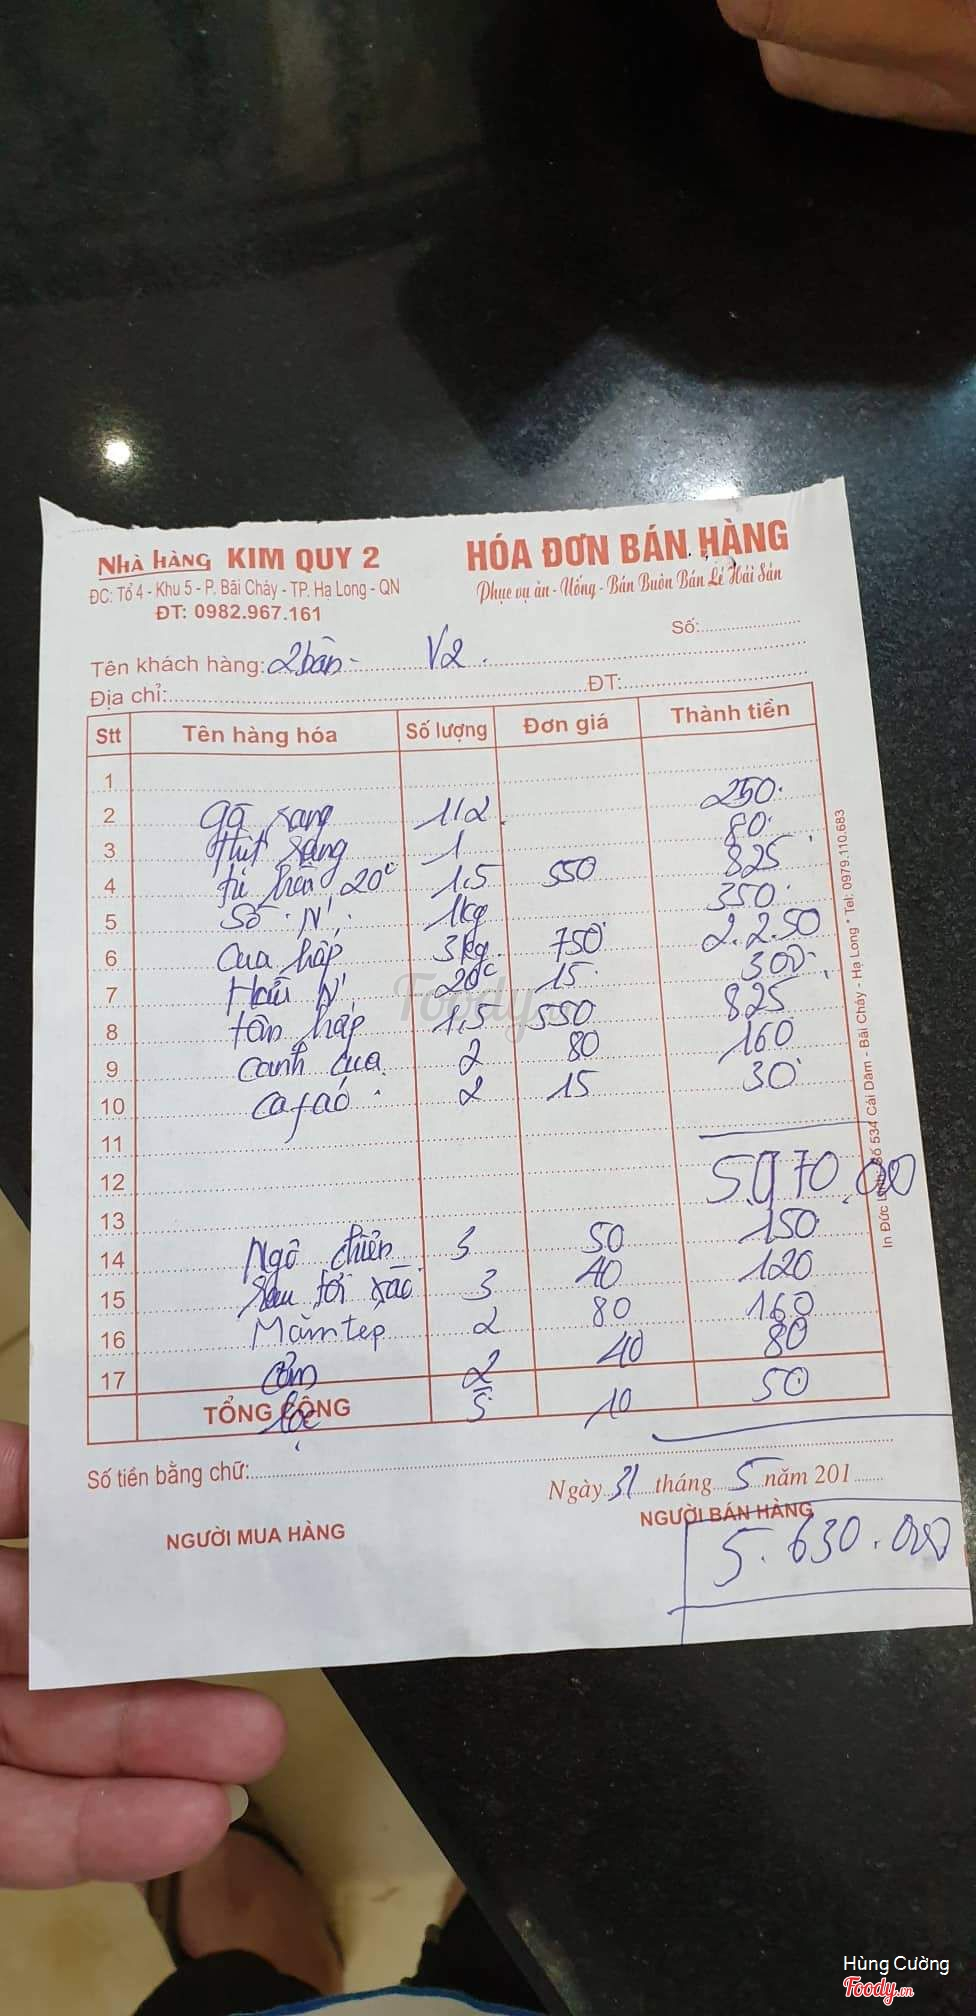 NHÀ HÀNG KIM QUY 2
ĐC: Tổ 4 - Khu 5 - P. Bãi Cháy - TP. Hạ Long - QN
ĐT: 0982.967.161
HÓA ĐƠN BÁN HÀNG
Phục vụ ăn - Uống - Bán Buôn Bán Lẻ Hải Sản
Số:
Tên khách hàng: 2 bàn - V2.
Địa chỉ: ĐT:
Stt Tên hàng hóa Số lượng Đơn giá Thành tiền
1
2 gà rang 1/2 250.
3 thịt rang 1 80.
4 tu hài 20c 1.5 550 825
5 Sò N'. 1kg 350.
6 Cua hấp 3kg. 750 2.250
7 Hàu N'. 20c 15. 300
8 tôm hấp 1.5 550 825
9 canh cua 2 80 160
10 cafaó 2 15 30
11
12 5.070.00
13 150
14 Ngô chiên 3 50 120
15 Rau tỏi xào 3 40
16 Mắm tep 2 80 160
17 cơm 2 40 80
TỔNG CỘNG lạc 5 10 50
Số tiền bằng chữ:
Ngày 31 tháng 5 năm 201
NGƯỜI MUA HÀNG NGƯỜI BÁN HÀNG
5.630.000
In Đức Số 534 Cái Dăm - Bãi Cháy - Hạ Long * Tel: 0979.110.683
Foody
Hùng Cường
Foody.vn